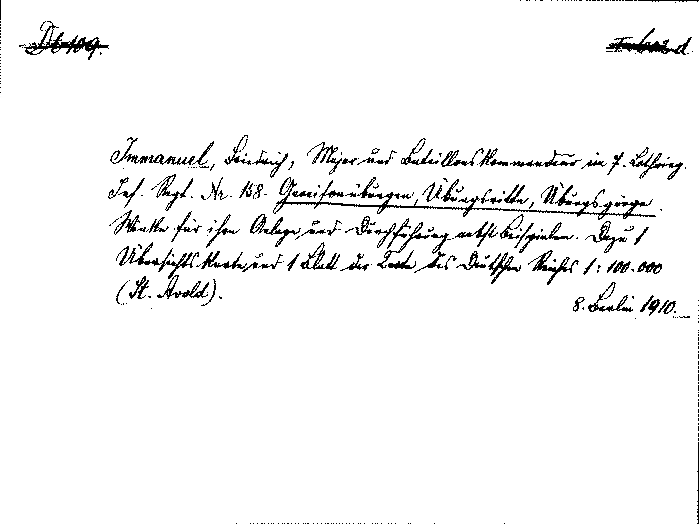 Db 109.
Immanuel, Friedrich, Major und Bataillonskommandeur im 7. Lothring.
Inf. Regt. Nr. 158. Garnisonübungen, Übungsritte, Übungsgänge.
Winke für ihre Anlage und Durchführung nebst Beispielen. Dazu 1
Übersichtskarte und 1 Blatt der Karte des Deutschen Reiches 1:100.000
(St. Avold).
8. Berlin 1910.